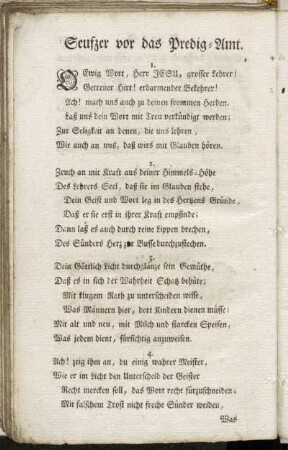 Seufzer vor das Predig-Amt.
1.
O Ewig Wort, Herr JESU, grosser Lehrer!
Getreuer Hirt! erbarmender Bekehrer!
Ach! mach uns auch zu deinen frommen Herden.
Laß uns dein Wort mit Treu verkündigt werden;
Zur Seligkeit an denen, die uns lehren,
Wie auch an uns, daß wirs mit Glauben hören.
2.
Zeuch an mit Kraft aus deiner Himmels-Höhe
Des Lehrers Seel, daß sie im Glauben stehe,
Dein Geist und Wort leg in des Hertzens Gründe,
Daß er sie erst in ihrer Kraft empfinde;
Dann laß es auch durch reine Lippen brechen,
Des Sünders Hertz zur Busse durchzustechen.
3.
Dein Göttlich Licht durchglanze sein Gemüthe,
Daß es in sich der Wahrheit Schatz behüte;
Mit klugem Rath zu unterscheiden wisse,
Was Männern hier, dort Kindern dienen müsse:
Mit alt und neu, mit Milch und starcken Speisen,
Was jedem dient, fürsichtig anzuweisen.
4.
Ach! zeig ihm an, du einig wahrer Meister,
Wie er im Licht den Unterscheid der Geister
Recht mercken soll, das Wort recht fürzuschneiden;
Mit falschem Trost nicht freche Sünder weiden,
Was